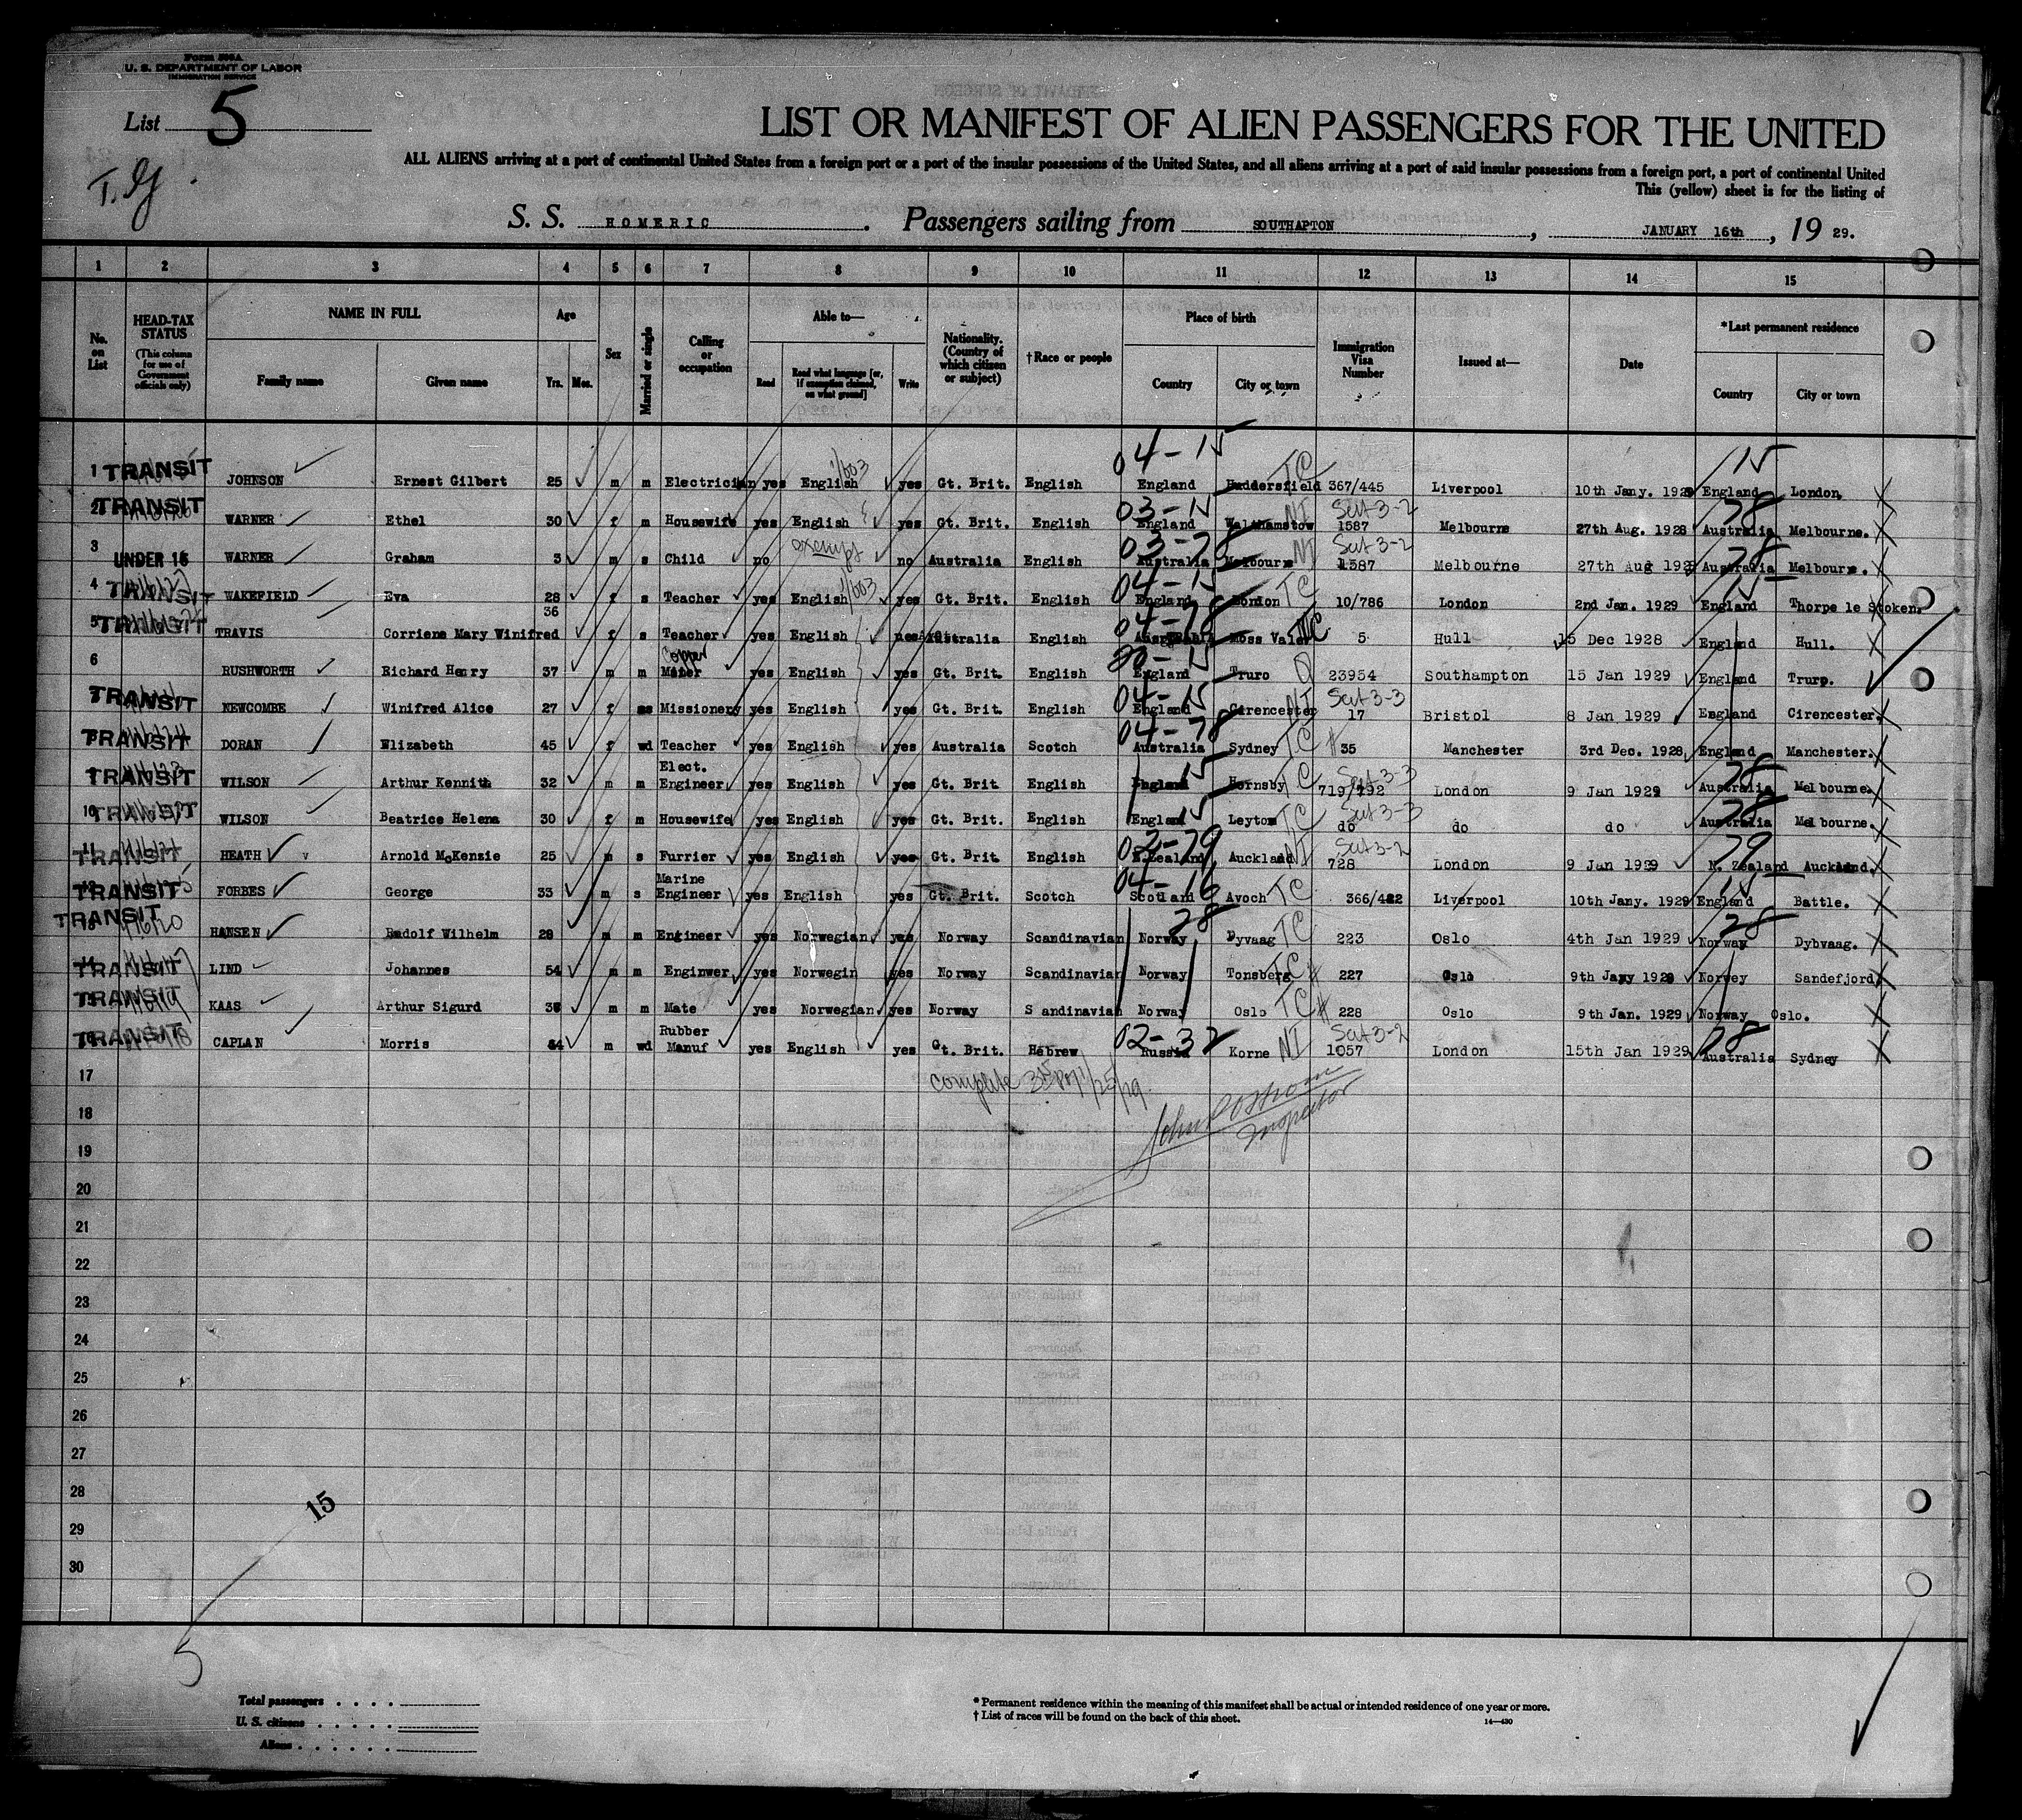 Form 500A
U. S. DEPARTMENT OF LABOR
IMMIGRATION SERVICE
List 5
LIST OR MANIFEST OF ALIEN PASSENGERS FOR THE UNITED
ALL ALIENS arriving at a port of continental United States from a foreign port or a port of the insular possessions of the United States, and all aliens arriving at a port of said insular possessions from a foreign port, a port of continental United
This (yellow) sheet is for the listing of
S. S. HOMERIC . Passengers sailing from SOUTHAPTON , JANUARY 16th , 19 29.
1 2 3 4 5 6 7 8 9 10 11 12 13 14 15
No. on List
HEAD-TAX STATUS (This column for use of Government officials only)
NAME IN FULL Family name Given name
Age Yrs. Mos.
Sex
Married or single
Calling or occupation
Able to— Read Read what language [or, if exemption claimed, on what ground] Write
Nationality. (Country of which citizen or subject)
†Race or people
Place of birth Country City or town
Immigration Visa Number
Issued at—
Date
*Last permanent residence Country City or town
04-15 TC 15
1 TRANSIT JOHNSON Ernest Gilbert 25 m m Electrician yes English yes Gt. Brit. English England Huddersfield 367/445 Liverpool 10th Jany. 1929 England London.
03-15 NI Sect 3-2 78
2 TRANSIT WARNER Ethel 30 f m Housewife yes English yes Gt. Brit. English England Walthamstow 1587 Melbourne 27th Aug. 1928 Australia Melbourne.
exempt 03-78 NI Sect 3-2 78
3 UNDER 16 WARNER Graham 3 m s Child no no Australia English Australia Melbourn 1587 Melbourne 27th Aug 1928 Australia Melbourn.
04-15 TC 15
4 TRANSIT WAKEFIELD Eva 28 f s Teacher yes English yes Gt. Brit. English England London 10/786 London 2nd Jan. 1929 England Thorpe le Stoken.
04-78 TC
5 TRANSIT TRAVIS Corriene Mary Winifred 36 f s Teacher yes English Australia English Moss Vale 5 Hull 15 Dec 1928 England Hull.
Copper 15
6 RUSHWORTH Richard Henry 37 m m Miner yes English yes Gt. Brit. English England Truro Q 23954 Southampton 15 Jan 1929 England Trurp.
04-15 NI Sect 3-3
7 TRANSIT NEWCOMBE Winifred Alice 27 f Missionery yes English yes Gt. Brit. English England Cirencester 17 Bristol 8 Jan 1929 England Cirencester.
04-78
8 TRANSIT DORAN Elizabeth 45 f wd Teacher yes English yes Australia Scotch Australia Sydney TC # 35 Manchester 3rd Dec. 1928 England Manchester.
Elect. 15 TC Sect 3-3 78
9 TRANSIT WILSON Arthur Kennith 32 m m Engineer yes English yes Gt. Brit English England Hornsby 719/792 London 9 Jan 1929 Australia Melbourne.
15 TC Sect 3-3 78
10 TRANSIT WILSON Beatrice Helena 30 f m Housewife yes English yes Gt. Brit. English England Leyton do do do Australia Melbourne.
02-79 NI Sect 3-2 79
11 TRANSIT HEATH Arnold McKenzie 25 m s Furrier yes English yes Gt. Brit English N.Zealand Auckland 728 London 9 Jan 1929 N. Zealand Auckland.
Marine 04-16 15
12 TRANSIT FORBES George 33 m s Engineer yes English yes Gt. Brit. Scotch Scotland Avoch TC 366/422 Liverpool 10th Jany. 1929 England Battle.
28 TC 28
13 TRANSIT HANSEN Rudolf Wilhelm 28 m m Engineer yes Norwegian yes Norway Scandinavian Norway Dyvaag 223 Oslo 4th Jan 1929 Norway Dybvaag.
14 TRANSIT LIND Johannes 54 m m Enginwer yes Norwegin yes Norway Scandinavian Norway Tonsberg TC # 227 Oslo 9th Jany 1929 Norwey Sandefjord.
15 TRANSIT KAAS Arthur Sigurd m m Mate yes Norwegian yes Norway S andinavian Norway Oslo TC # 228 Oslo 9th Jan. 1929 Norway Oslo.
Rubber 02-32 NI Sect 3-2 78
16 TRANSIT CAPLAN Morris m wd Manuf yes English yes Gt. Brit. Hebrew Russia Korne 1057 London 15th Jan 1929 Australia Sydney
17 complete 1/25/29
18 John Inspector
19
20
21
22
23
24
25
26
27
28
15
29
30
5
Total passengers
U. S. citizens
Aliens
* Permanent residence within the meaning of this manifest shall be actual or intended residence of one year or more.
† List of races will be found on the back of this sheet.
14—430